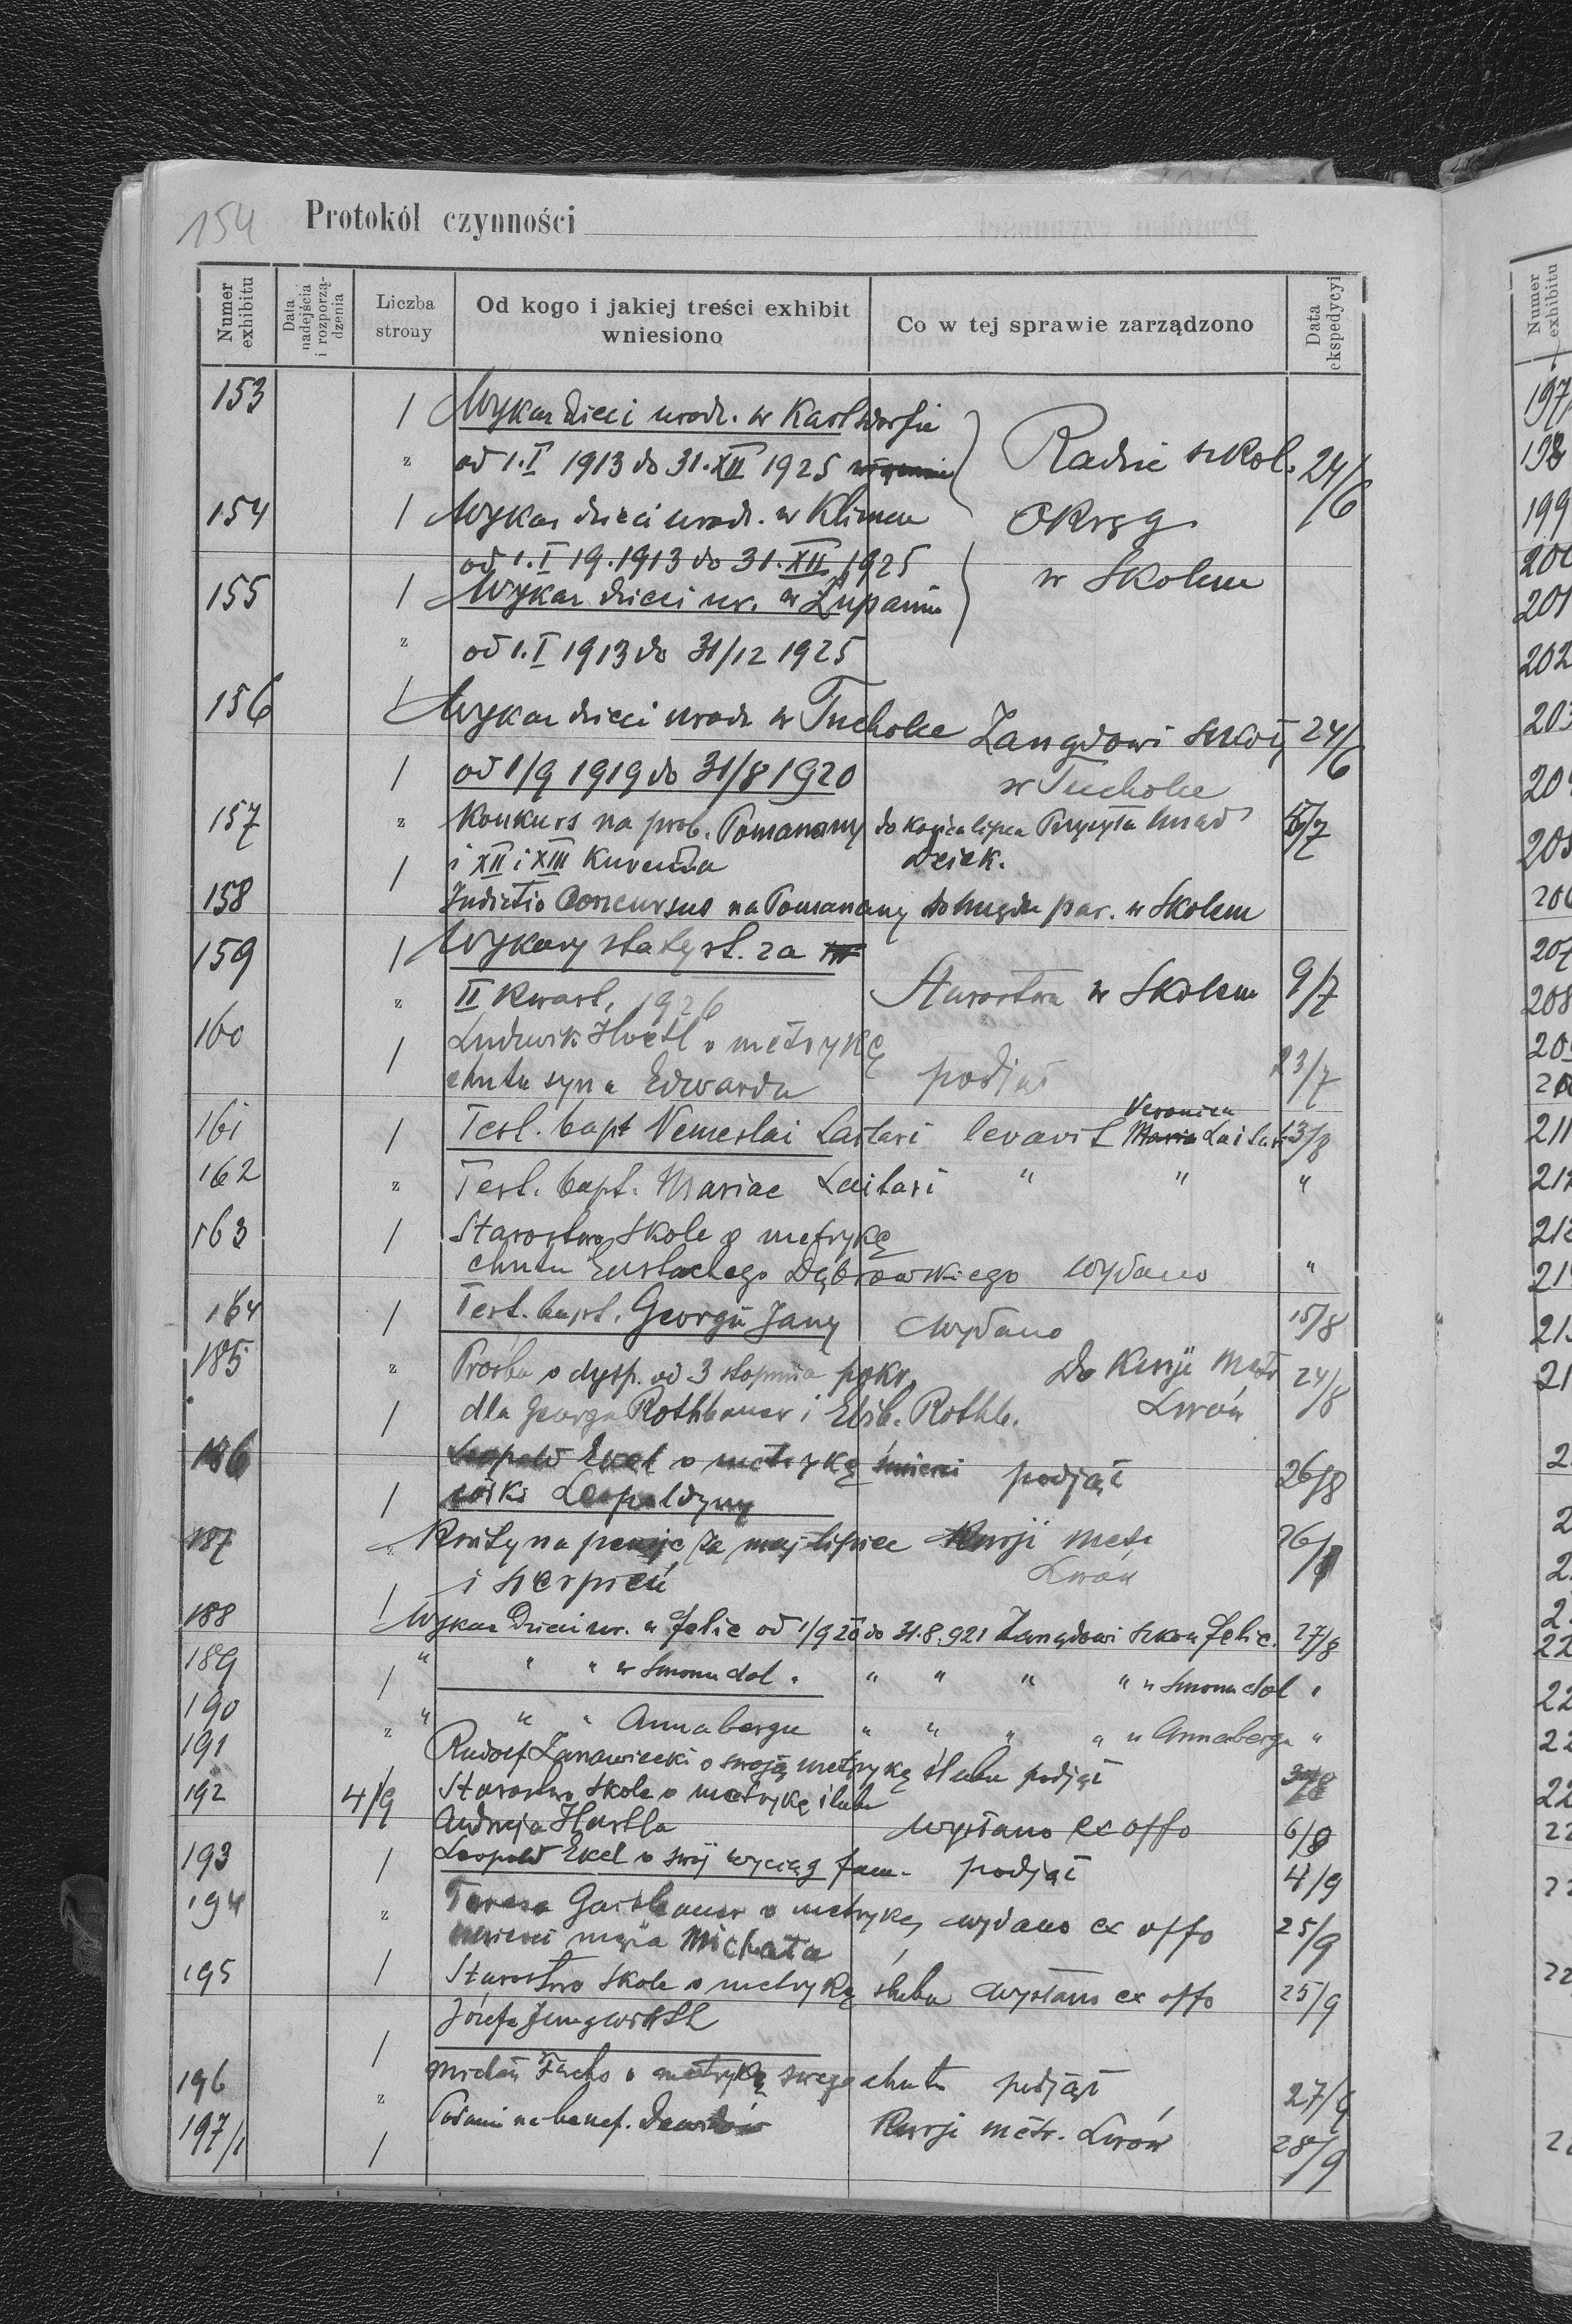 154 Protokół czynności
Numer exhibitu
Data nadejścia i rozporządzenia
Liczba strony
Od kogo i jakiej treści exhibit wniesiono
Co w tej sprawie zarządzono
Data ekspedycyi
153 Wykaz dzieci urodz. w Karlsdorfie
od 1.I 1913 do 31.XII 1925 Radzie szkol. 24/6
154 Wykaz dzieci urodz. w Klimcu Okręg.
od 1.I 19.1913 do 31.XII 1925 w Skolem
155 Wykaz dzieci ur. w Żupaniu
od 1.I 1913 do 31/12 1925
156 Wykaz dzieci urodz w Tucholce Zarządowi szkoły 24/6
od 1/9 1919 do 31/8 1920 w Tucholce
157 Konkurs na prob. Pomorzany do końca lipca Urząd
i XII i XIII Kurenda dziek.
158 Indictio Concursus na Pomorzany do Urzędu par. w Skolem
159 Wykazy statyst. za
II kwart. 1926 Starostwu w Skolem 9/7
160 Ludwik Hoetl o metrykę
chrztu syna Edwarda podjął 23/7
161 Test. bapt Venceslai Laitari levavit Maria Veronica Laitari 13/8
162 Test. bapt. Mariae Laitari " " "
163 Starostwo Skole o metrykę
chrztu Eustachego Dąbrowskiego wydano "
164 Test. bapt. Georgii Jany wydano 15/8
185 Prośba o dysp. od 3 stopnia pokr. Do Kurji Metr 24/8
dla Georga Rothbauer i Elsb. Rothb. Lwów
186 Leopold Ekel o metrykę śmierci podjął 26/8
córki Leopoldyny
187 Kwity na pensje za maj-lipiec Kurji metr 26/8
i sierpień Lwów
188 Wykaz Dzieci ur. w Felic od 1/9 20 do 31.8.921 Zarządowi szkoły Felic. 27/8
189 " " " w Smorzu dol. " " " " " Smorzu dol "
190 " " " Annabergu " " " " " Annabergu "
191 Rudolf Zarawiecki o swoją metrykę ślubu podjął
192 4/9 Starostwo Skole o metrykę ślubu
Andrzeja Hartla wysłano ex offo 6/9
193 Leopold Ekel o swój wyciąg fam. podjął 4/9
194 Teresa Gaisbauer o metrykę wydano ex offo 25/9
śmierci męża Michała
195 Starostwo Skole o metrykę ślubu wysłano ex offo 25/9
Józefa Jungwirth
196 Michał Fuchs o metrykę swego chrztu podjął 27/9
197/1 Podanie na benef. Kurji metr. Lwów 28/9